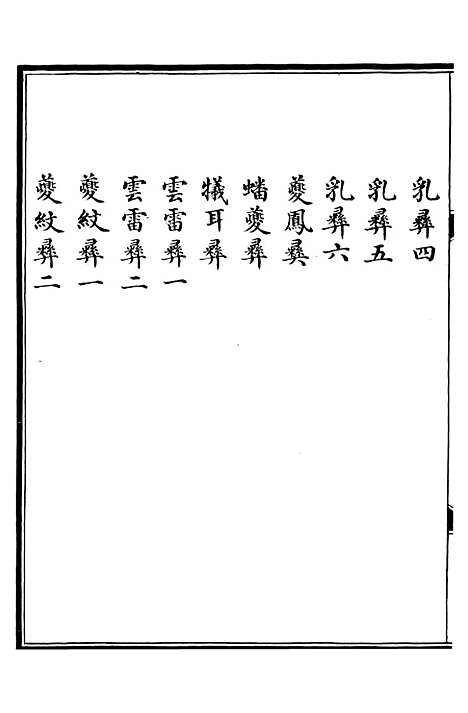 乳彝四
乳彝五
乳彝六
夔鳳彝
蟠夔彝
犧耳彝
雲雷彝一
雲雷彝二
夔紋彝一
夔紋彝二